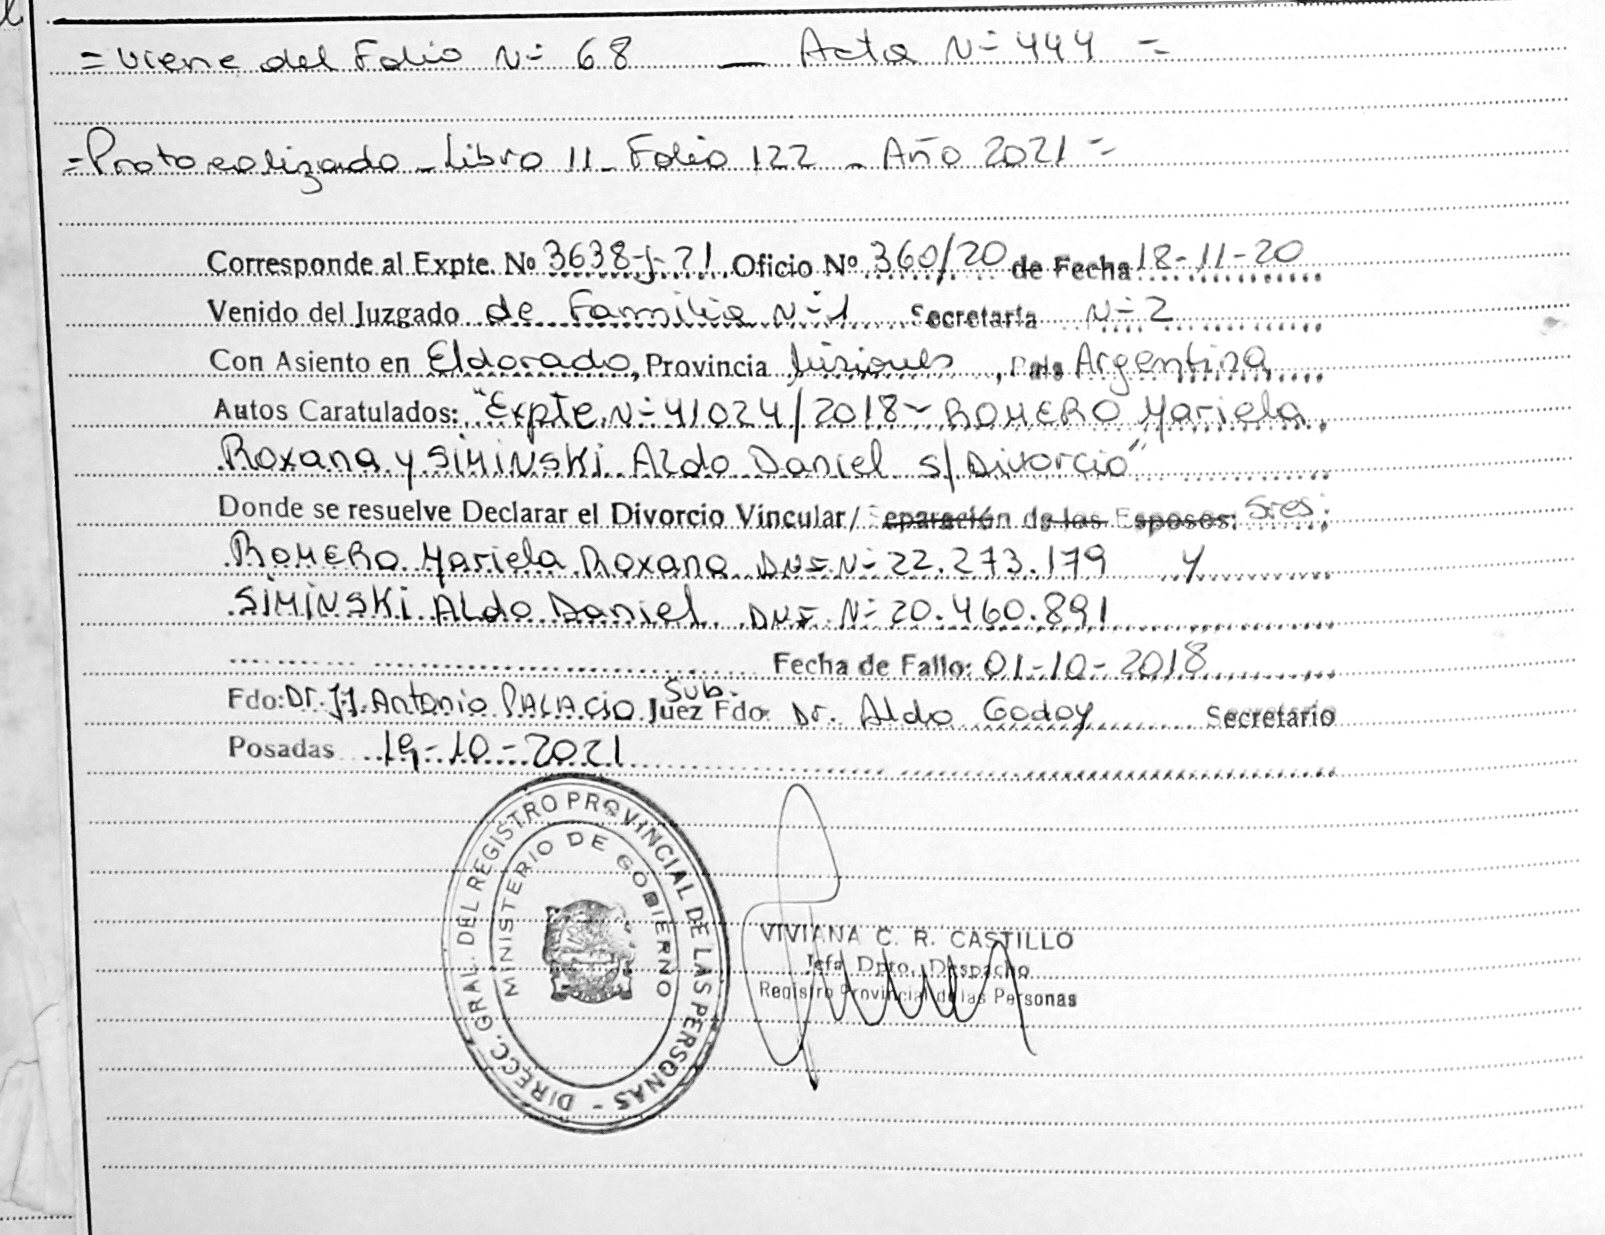 = Viene del Folio Nº 68 — Acta Nº 444 =
= Protocolizado - Libro 11 - Folio 122 - Año 2021 =
Corresponde al Expte. Nº 3638-J-21 Oficio Nº 360/20 de Fecha 18-11-20
Venido del Juzgado de Familia Nº 1 Secretaría Nº 2
Con Asiento en Eldorado, Provincia Misiones, País Argentina
Autos Caratulados: "Expte. Nº 41024/2018 - ROMERO Mariela
Roxana y SIMINSKI Aldo Daniel s/ Divorcio"
Donde se resuelve Declarar el Divorcio Vincular/ Separación de los Esposos: Sres:
ROMERO Mariela Roxana DNI Nº 22.273.179 y
SIMINSKI Aldo Daniel DNI Nº 20.460.891
Fecha de Fallo: 01-10-2018
Fdo: Dr. J.J. Antonio PALACIO Juez Sub. Fdo: Dr. Aldo Godoy Secretario
Posadas 19-10-2021
DIRECC. GRAL. DEL REGISTRO PROVINCIAL DE LAS PERSONAS -
MINISTERIO DE GOBIERNO
VIVIANA C. R. CASTILLO
Jefa Dpto. Despacho
Registro Provincial de las Personas